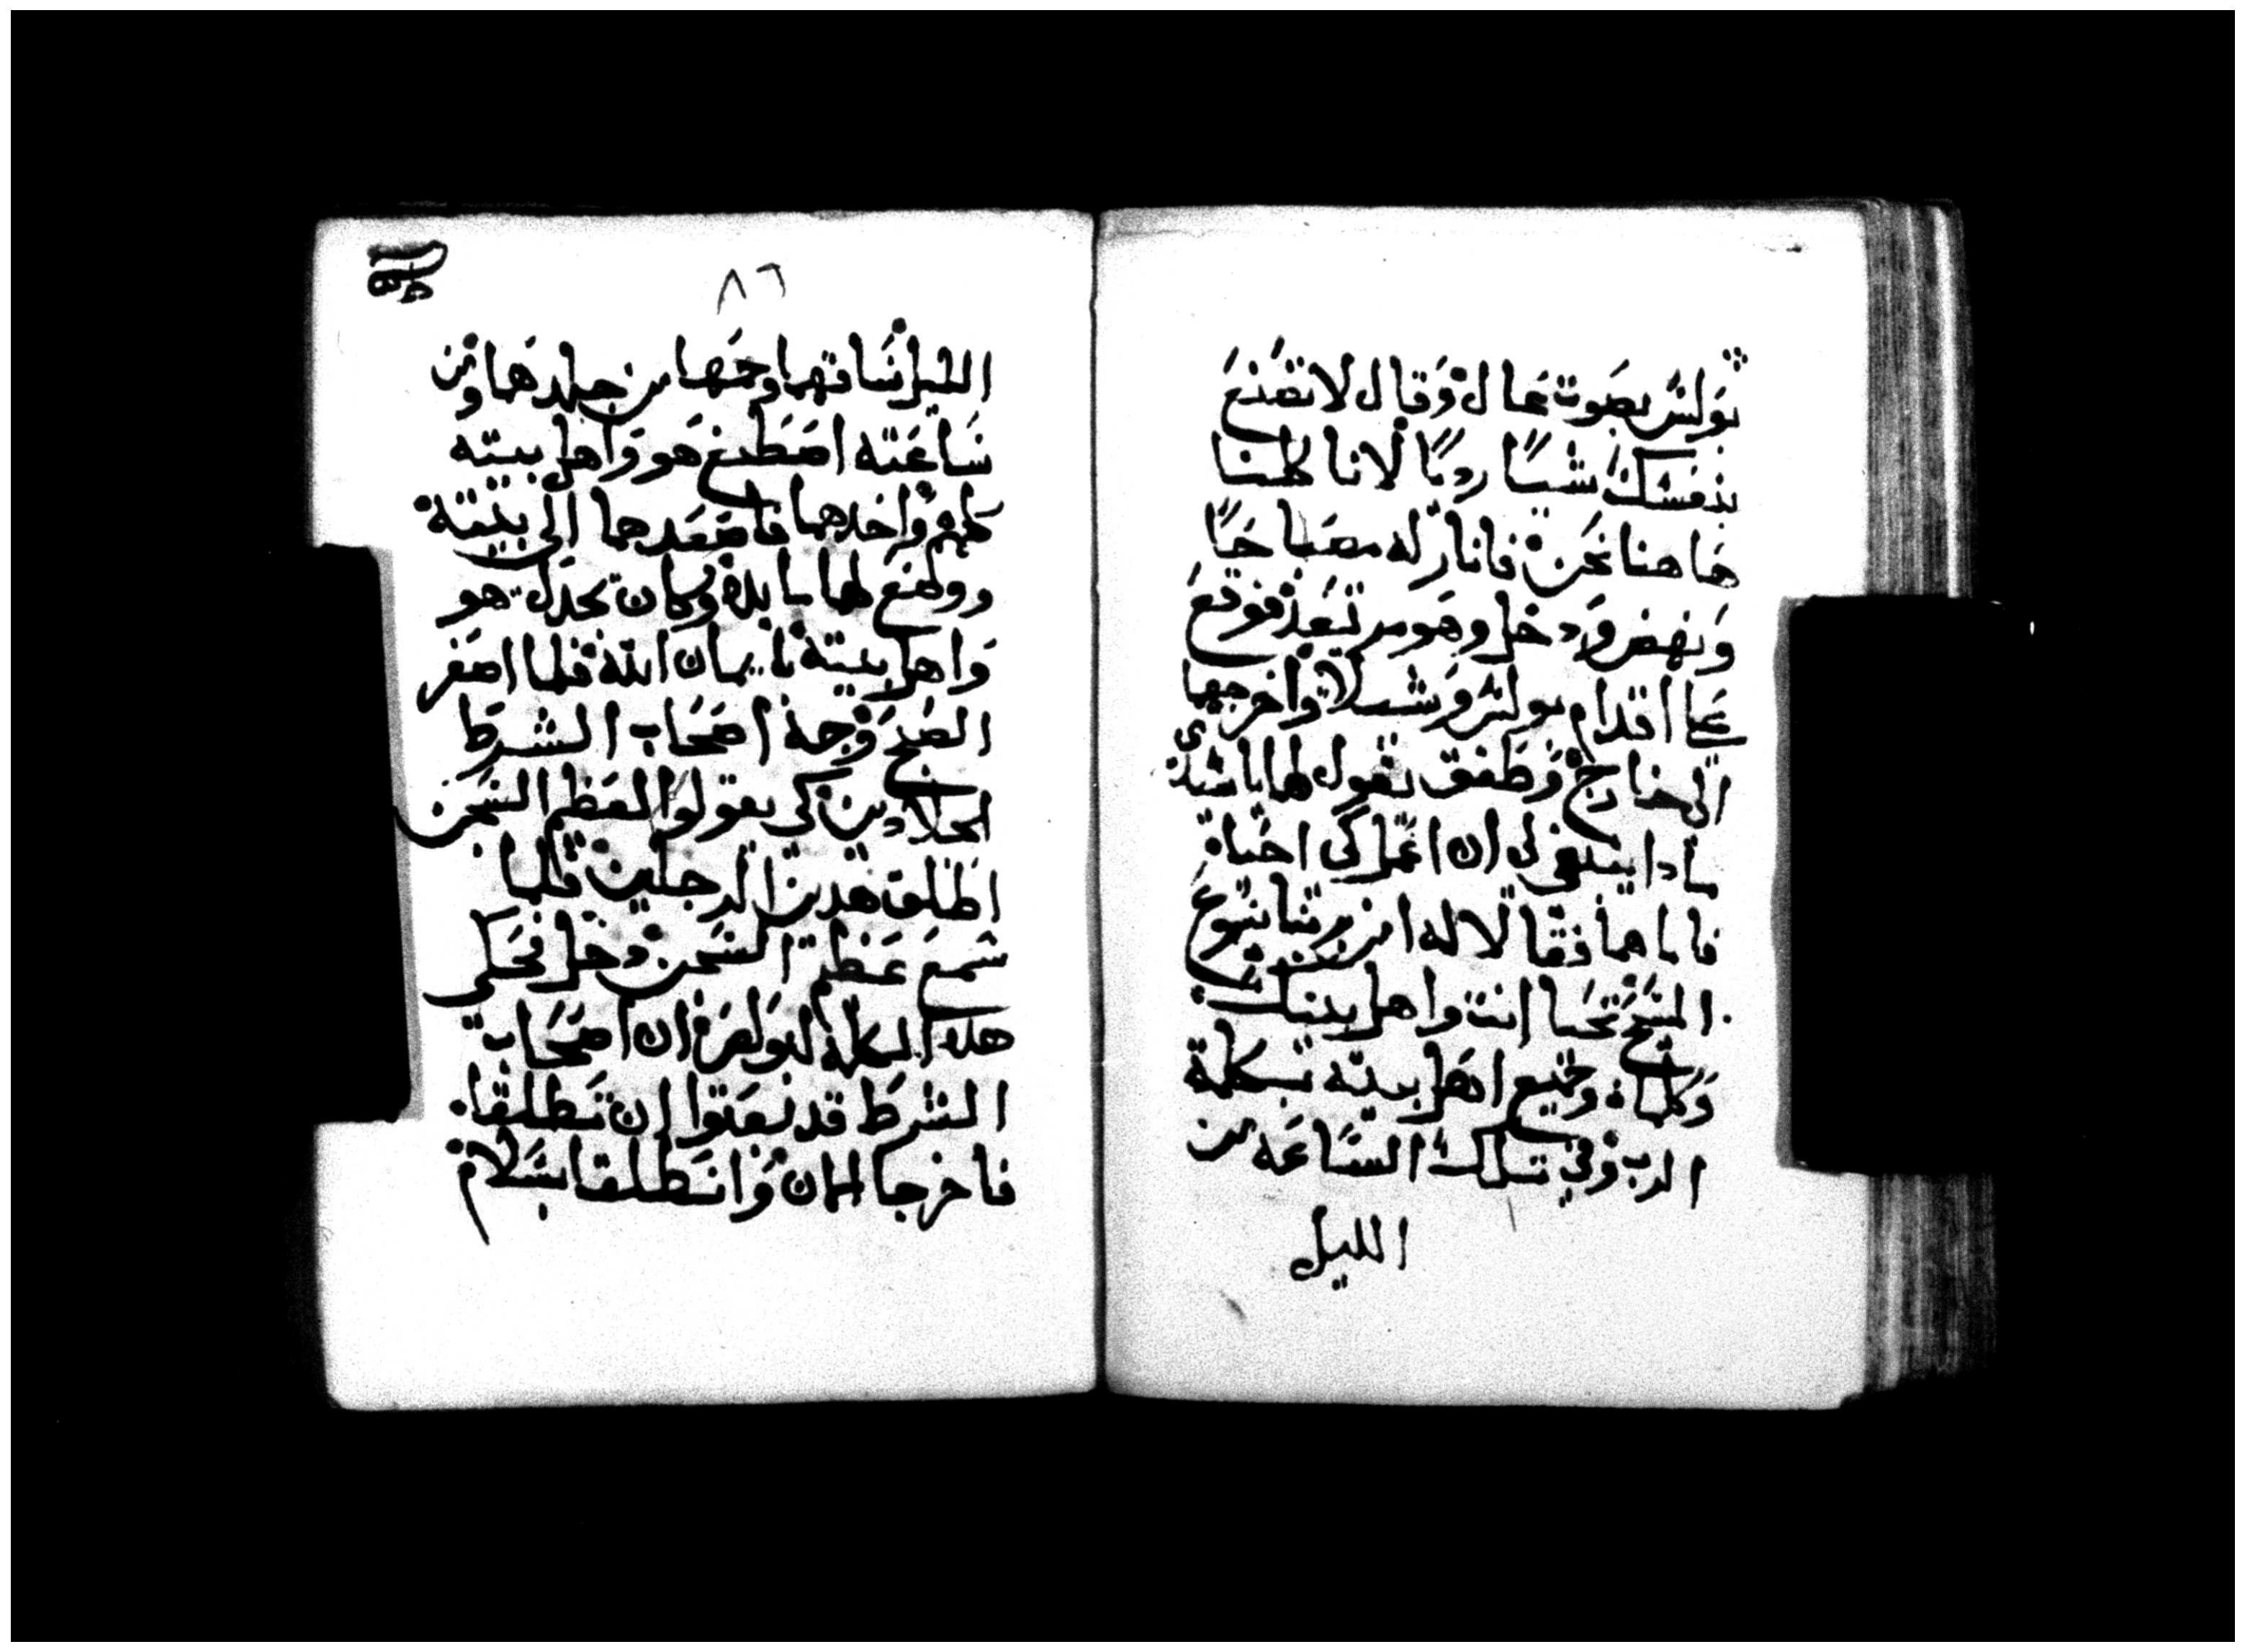 بولس بصوت عال وقال لا تصنع
بنفسك شيًا رديًا لانا كلنا
هاهنا نحن فانار له مصباحًا
ونهض ودخل وهو مرتعد فوقع
على اقدام بولس وشيلا واخرجهما
الى خارج وطفق يقول لهما يا سيدي
مادا ينبغي لي ان اعمل كي احياه
فاما هما فقالا له امن بربنا يسوع
المسيح تحيا انت واهل بيتك
وكلماه وجميع اهل بيته بكلمة
الرب وفي تلك الساعه من
الليل
٨٦
الليل ساقهما وحمها من جلدهما ومن
ساعته اصطبغ هو واهل بيته
كلهم واخدهما فاصعدهما الى بيته
ووضع لهما مايده وكان يجدل هو
واهل بيته بايمان الله فلما اصفر
الصبح وجه اصحاب الشرط
الجلادين كي يقولوا لعظيم السجن
اطلق هدين الرجلين فلما
سمع عظيم السجن دخل فحكى
هده الكلمه لبولص ان اصحاب
الشرط قد بعتوا ان تطلقا
فاخرجا الان وانطلقا بسلام